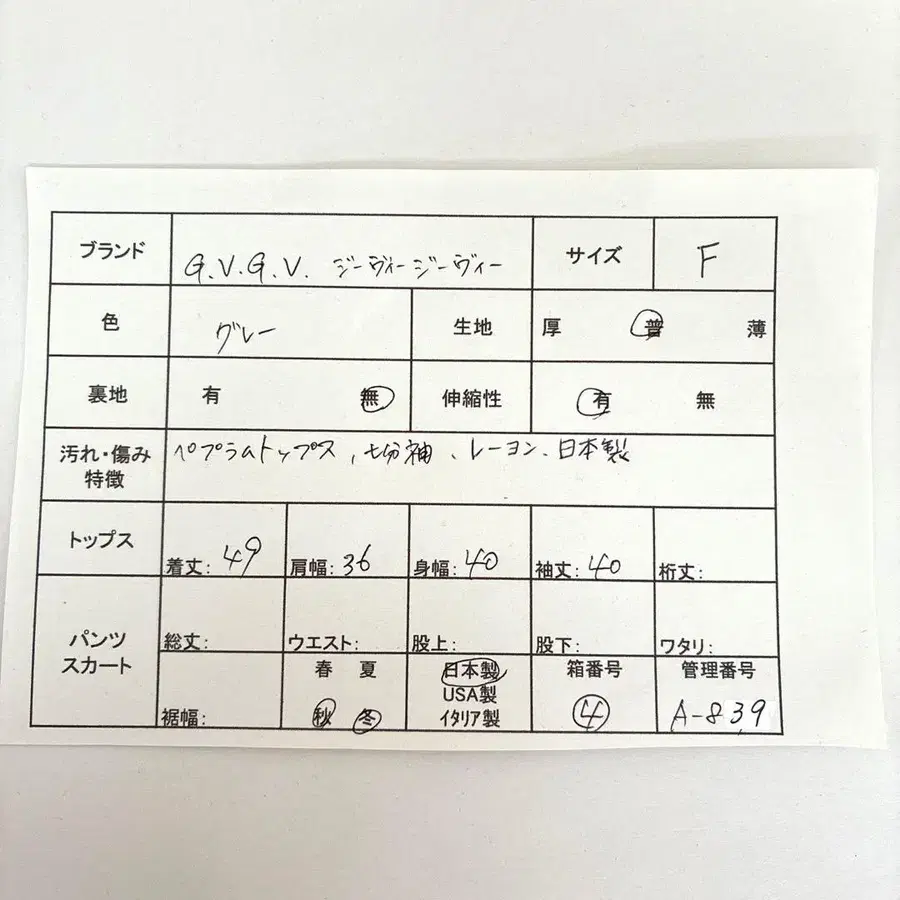 ブランド G.V.G.V. ジーヴィージーヴィー サイズ F
色 グレー 生地 厚 普 薄
裏地 有 無 伸縮性 有 無
汚れ・傷み ペプラムトップス、七分袖、レーヨン、日本製
特徴
トップス 着丈: 49 肩幅: 36 身幅: 40 袖丈: 40 裄丈:
パンツ 総丈: ウエスト: 股上: 股下: ワタリ:
スカート 春 夏 日本製 箱番号 管理番号
USA製
裾幅: 秋 冬 イタリア製 4 A-839